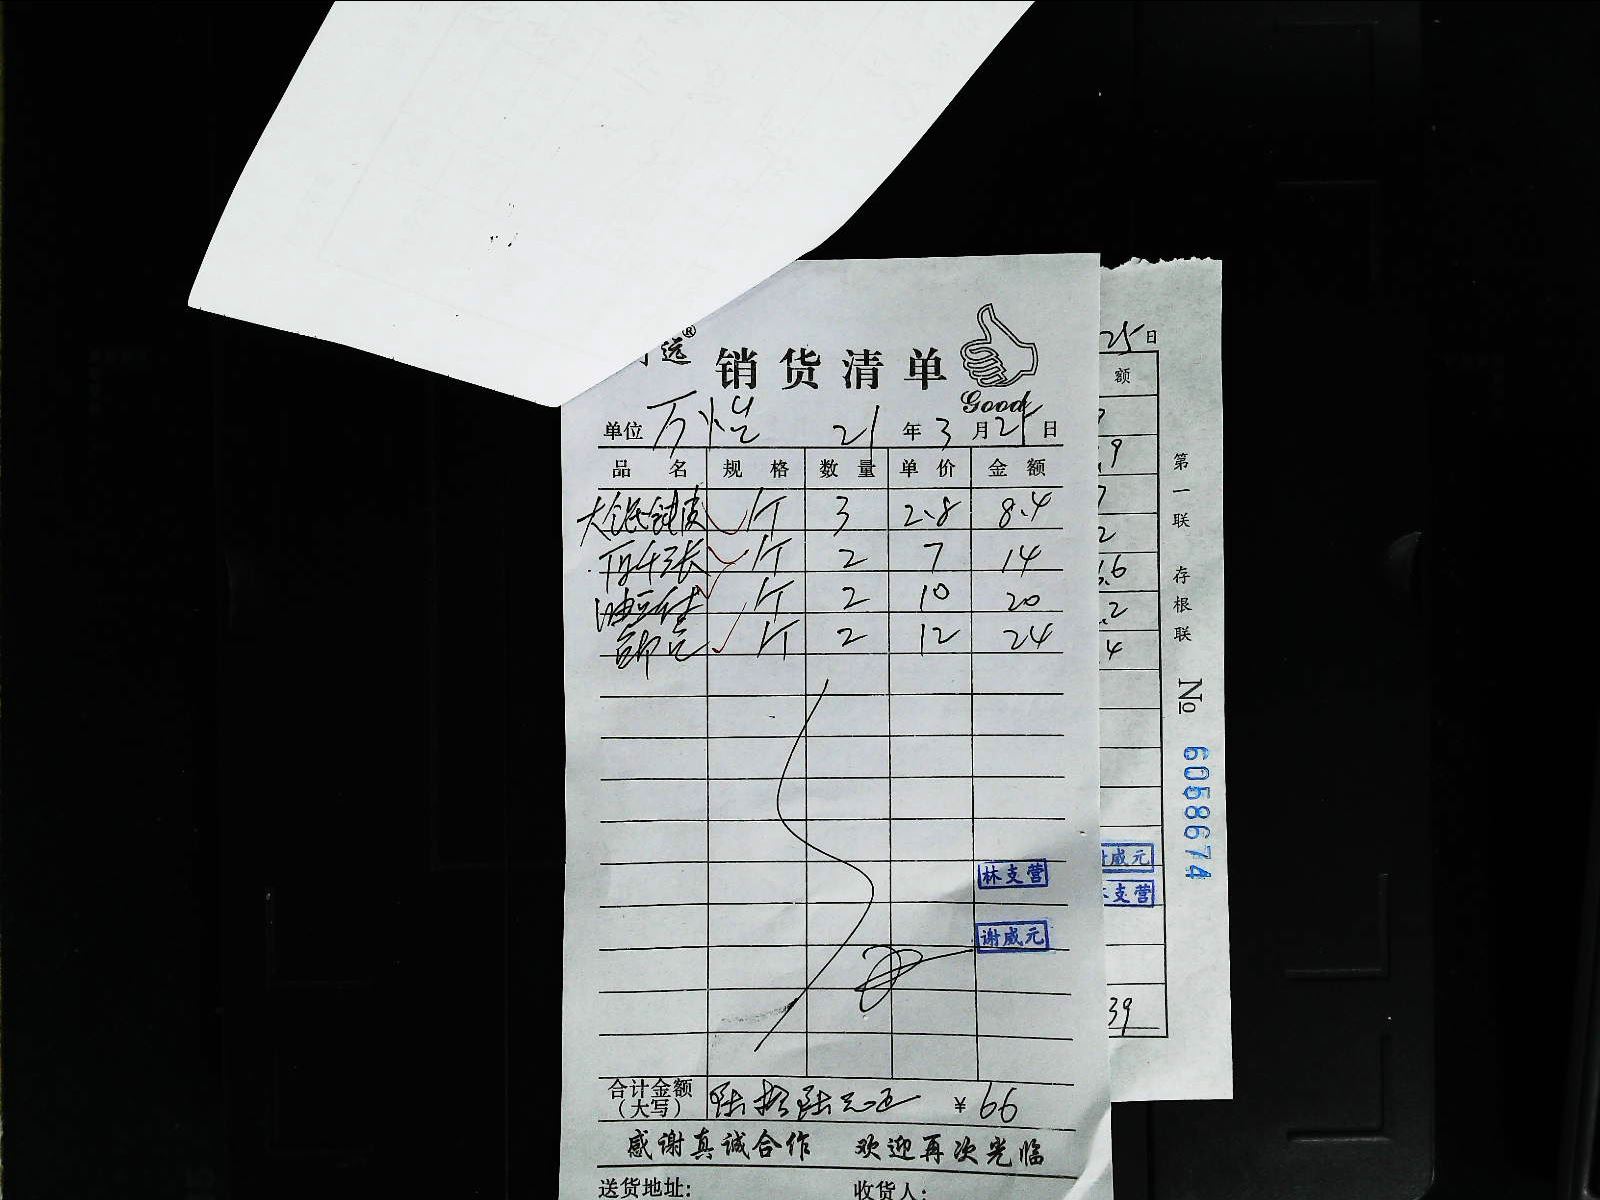 远®
销货清单
Good
单位 万 21年3月25日
品名 规格 数量 单价 金额
斤 3 2.8 8.4
千张 斤 2 7 14
油豆 斤 2 10 20
斤 2 12 24
林支营
谢威元
合计金额（大写） 陆拾陆元正 ¥66
感谢真诚合作 欢迎再次光临
送货地址: 收货人:
25日
额
9
7
2
.6
.2
4
威元
支营
39
第一联 存根联 № 6058674